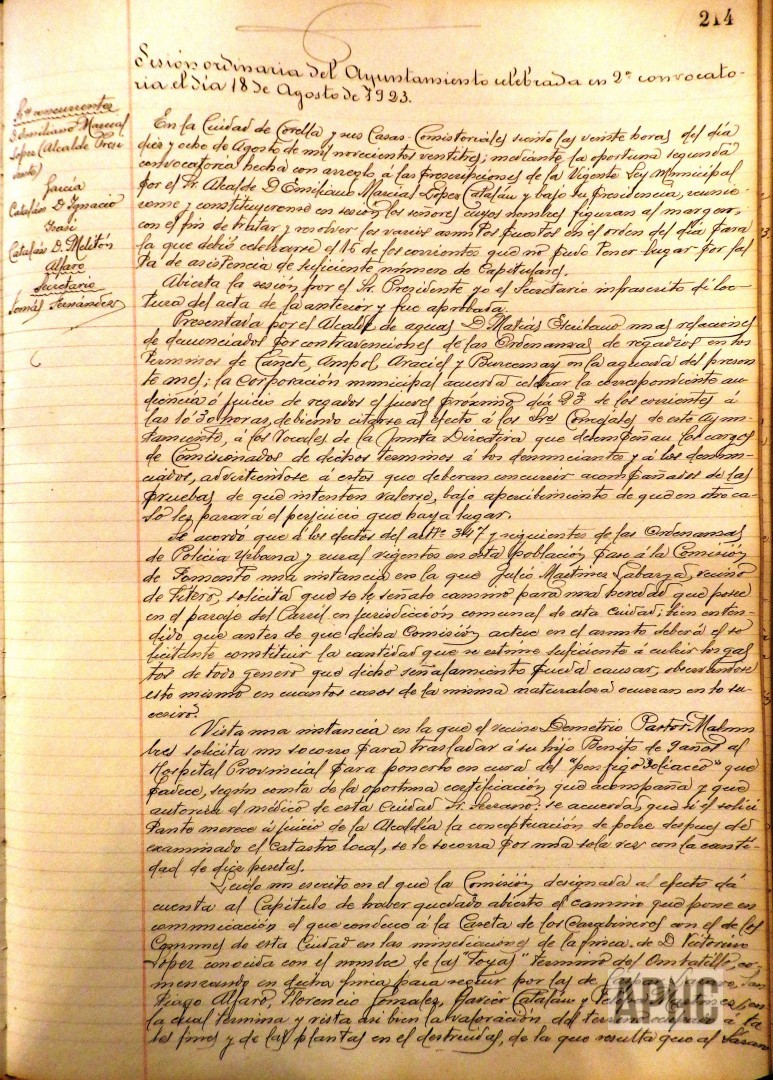 214
Sesión ordinaria del Ayuntamiento celebrada en 2ª convocato-
ria el día 18 de Agosto de 1923.
Sres concurrentes
D. Emiliano Marcial
Lopez (Alcalde Presi
dente)
García
Catalán D. Ignacio
Catalán D. Melitón
Alfaro
Secretario
Tomás Fernández
En la Ciudad de Corella y sus Casas-Comistoriales siendo las veinte horas del día
diez y ocho de Agosto de mil novecientos veintitres; mediante la oportuna segunda
convocatoria hecha con arreglo á las prescripciones de la Vigente Ley Municipal
por el Sr. Alcalde D. Emiliano Marcial López Catalán y bajo su presidencia, reunie-
ronse y constituyeronse en sesión los señores cuyos nombres figuran al margen,
con el fin de tratar y resolver los varios asuntos puestos en el orden del día para
la que debió celebrarse el 16 de los corrientes que no pudo tener lugar por fal
ta de asistencia de suficiente número de Capitulares.
Abierta la sesión por el Sr. Presidente yo el Secretario infrascrito di lec-
tura del acta de la anterior y fue aprobada.
Presentada por el Alcalde de aguas D. Matías Escribano unas relaciones
de denunciados por contravenciones de las Ordenanzas de regadios en los
terminos de Cañete, Ampol, Araciel y en la aguada del presen
te mes; la Corporación municipal acuerda celebrar la correspondiente au
diencia ó juicio de regados el jueves próximo día 23 de los corrientes á
las 16'30 horas, debiendo citarse al efecto á los Sres Concejales de este Ayun-
tamiento, a los Vocales de la Junta Directiva que desempeñan los cargos
de Comisionados de dichos terminos á los denunciantes y á los denun-
ciados, advirtiendose á estos que deberan concurrir acompañados de las
pruebas de que intenten valerse, bajo apercibimiento de que en otro ca-
so les parará el perjuicio que haya lugar.
Se acordó que á los efectos del artº 347 y siguientes de las Ordenanzas
de Policia Urbana y rural vigentes en esta población pase á la Comisión
de Fomento una instancia en la que Julio Martinez Labarga, vecino
de Fitero, solicita que se le señale camino para una heredad que posee
en el paraje del Carril en jurisdicción comunal de esta ciudad; bien enten-
dido que antes de que dicha Comisión actue en el asunto deberá el so
licitante constituir la cantidad que se estime suficiente á cubrir los gas
tos de todo genero que dicho señalamiento pueda causar, observandose
esto mismo en cuantos casos de la misma naturaleza ocurran en lo su-
cesivo.
Vista una instancia en la que el vecino Demetrio Pastor Malum
bres solicita un socorro para trasladar á su hijo Benito de 9 años al
Hospital Provincial para ponerlo en cura del "penfigo foliaceo" que
padece, según consta de la oportuna certificación que acompaña y que
autoriza el médico de esta Ciudad Sr. Serrano: se acuerda, que si el solici
tante merece á juicio de la Alcaldía la conceptuación de pobre despues de
examinado el Catastro local, se le socorra por una sola vez con la canti-
dad de diez pesetas.
Leido un escrito en el que la Comisión designada al efecto dá
cuenta al Capitulo de haber quedado abierto el camino que pone en
comunicación el que conduce á la Caseta de los Carabineros con el de los
Comunes de esta Ciudad en las inmediaciones de la finca de D. Victorino
López conocida con el nombre de las "Foyas" termino del Ombatillo, co-
menzando en dicha finca para seguir por las de San
tiago Alfaro, Florencio Gonzalez, Javier Catalán y en
la cual termina y vista asi bien la valoración del terreno á ta
les fines y de las plantas en el destruidas, de la que resulta que al
APHC